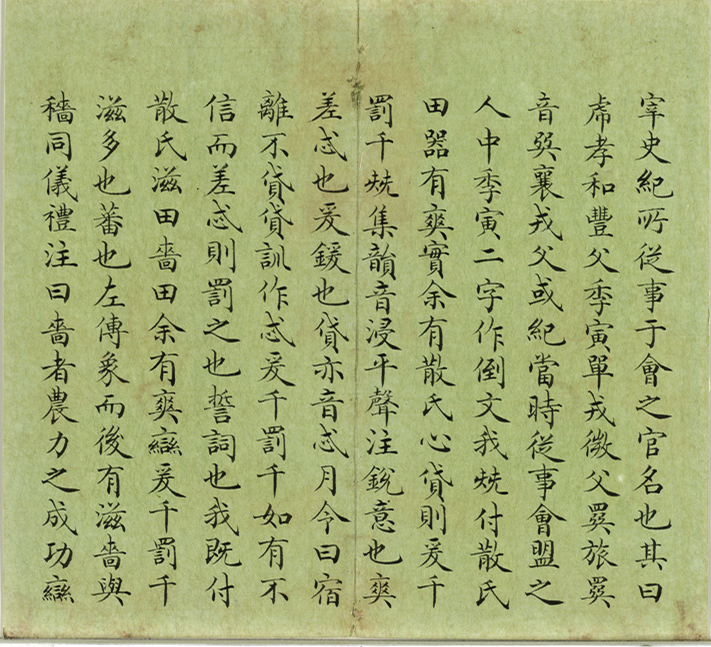 宰史紀所從事于會之官名也其曰
虎孝和豐父季寅單戎微父㠱旅㠱
音㢲襄戎父或紀當時從事會盟之
人中季寅二字作倒文我兟付散氏
田器有爽實余有散氏心貸則爰千
罰千兟集韻音浸平聲注銳意也爽
差忒也爰鍰也貸亦音忒月令曰宿
離不貸貸訓作忒爰千罰千如有不
信而差忒則罰之也誓詞也我既付
散氏滋田嗇田余有爽䜌爰千罰千
滋多也蕃也左傳象而後有滋嗇與
穡同儀禮注曰嗇者農力之成功䜌